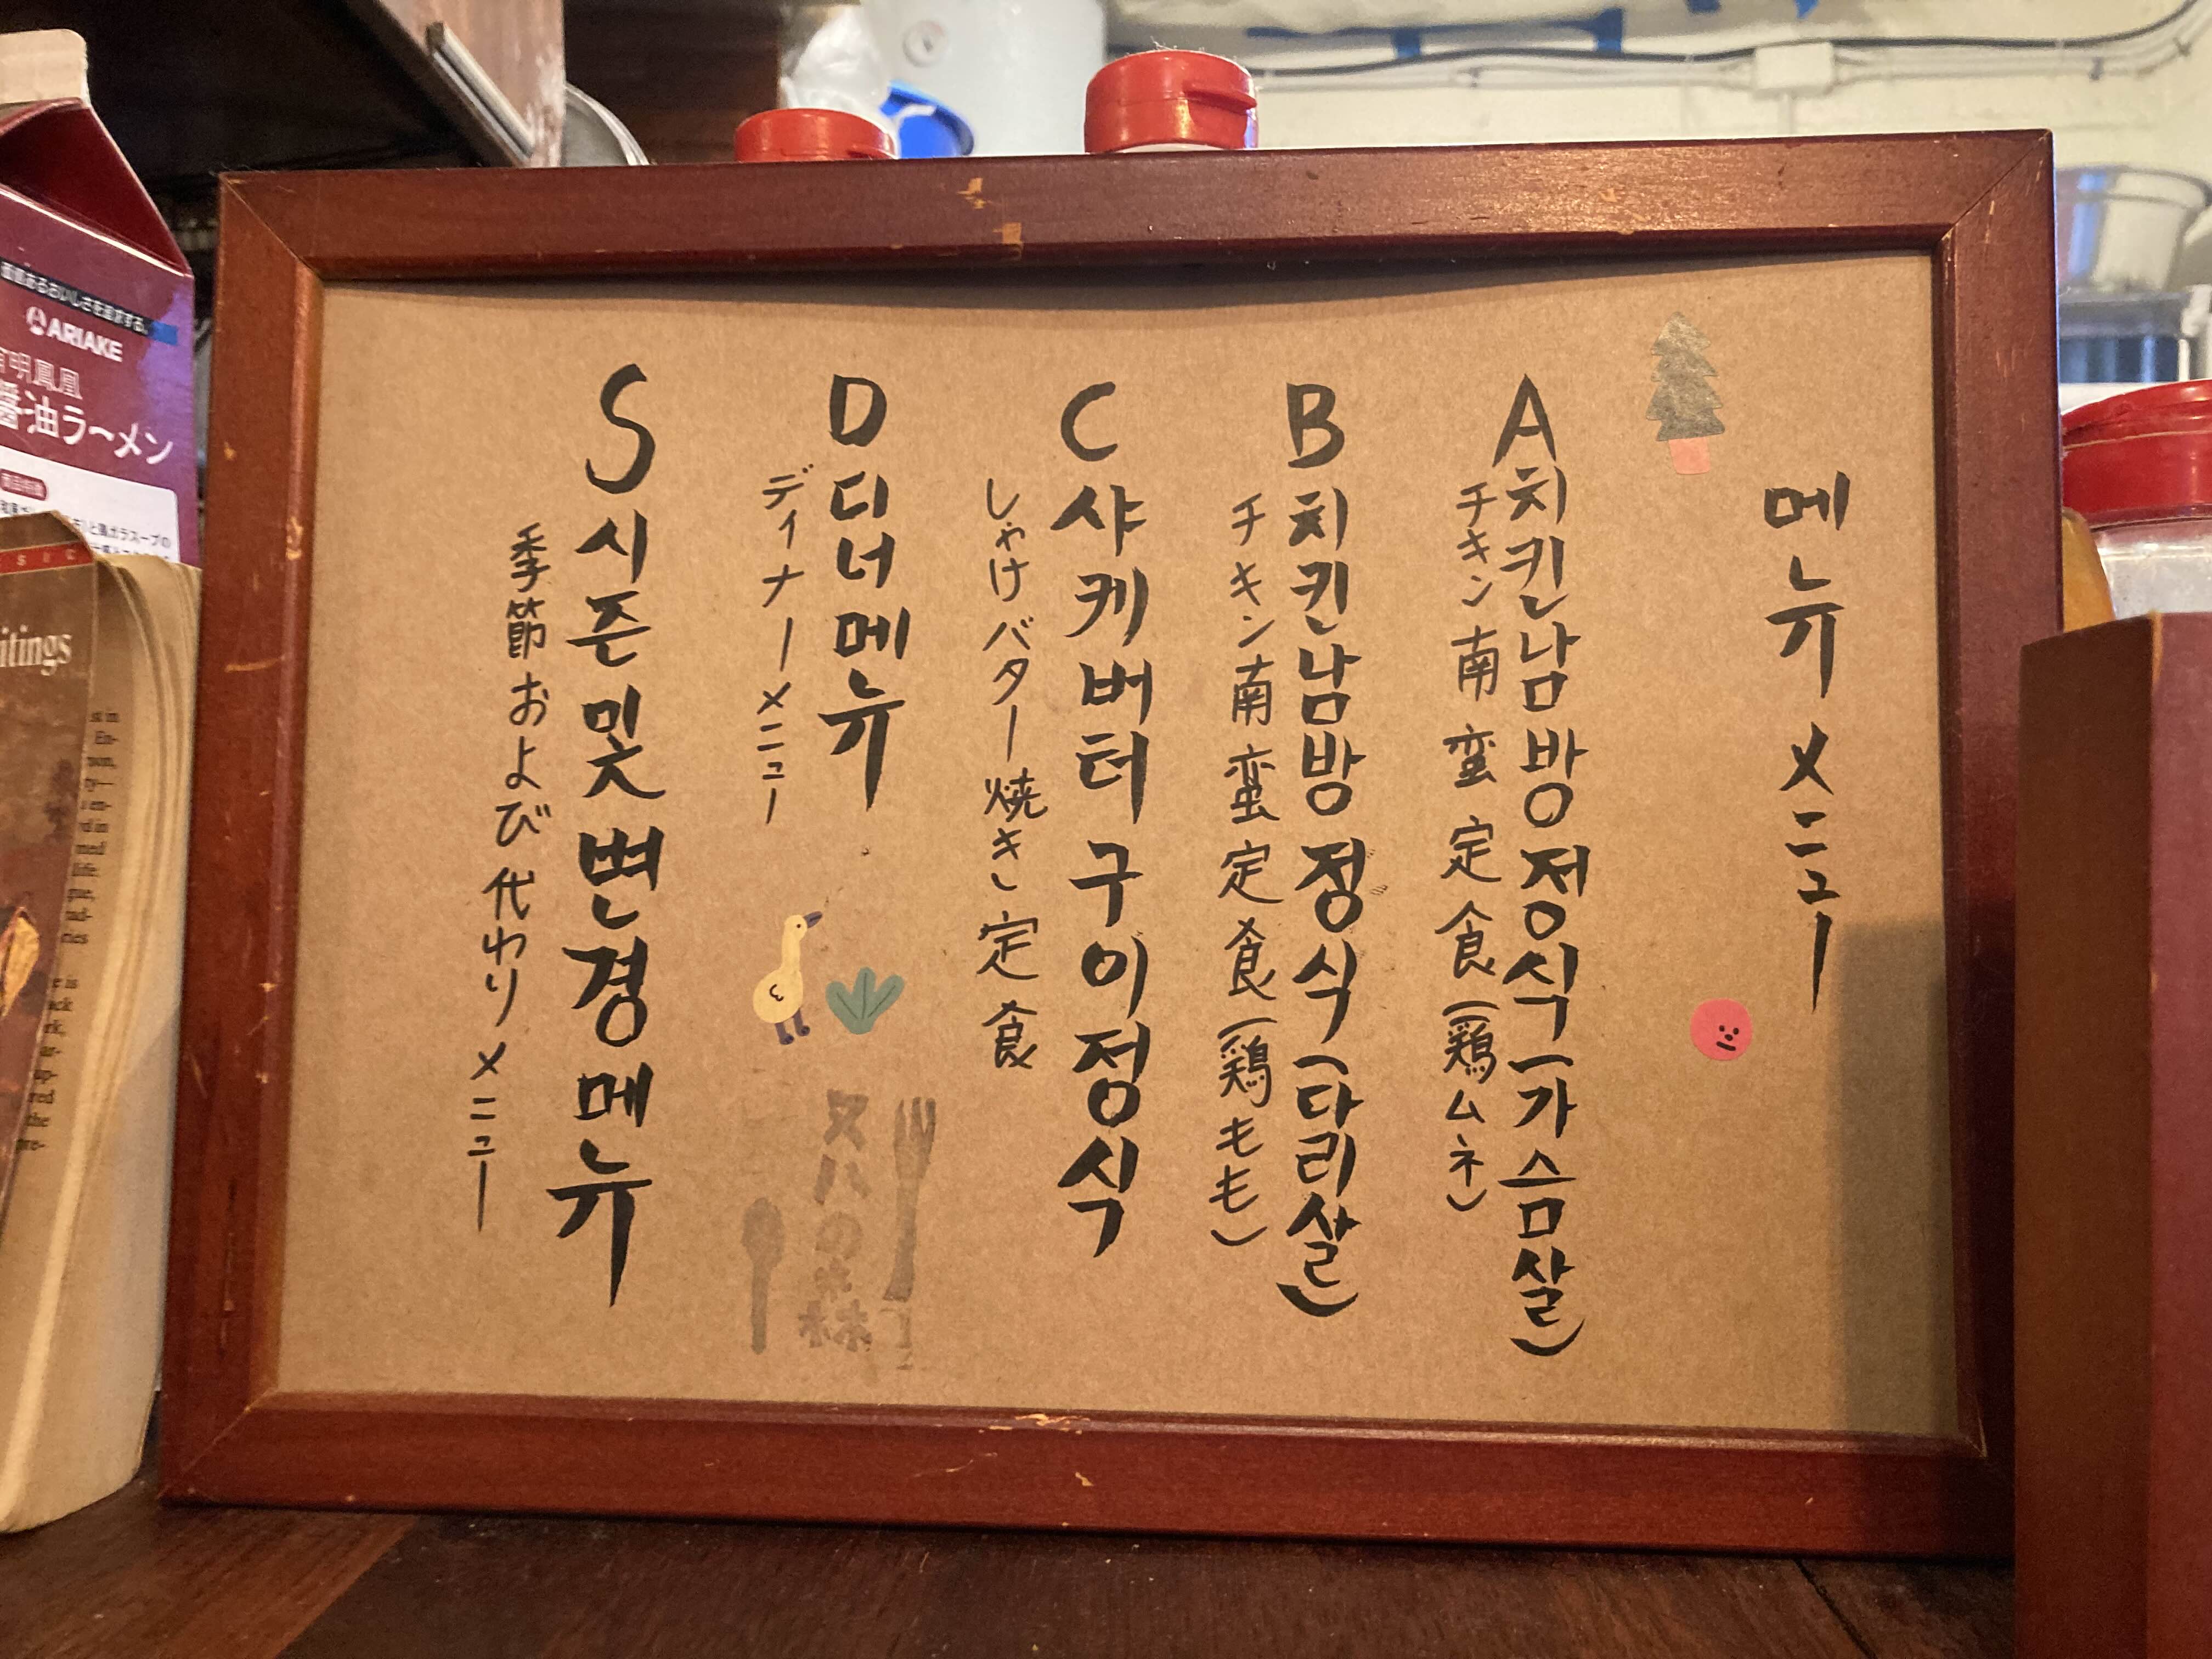 메뉴 メニュー
A 치킨남방정식(가슴살)
チキン南蛮定食(鶏ムネ)
B 치킨남방정식(다리살)
チキン南蛮定食(鶏モモ)
C 샤케버터구이정식
しゃけバター焼き定食
D 디너메뉴
ディナーメニュー
S 시즌및변경메뉴
季節および代わりメニュー
ARIAKE
有明鳳凰
醤油ラーメン
itings